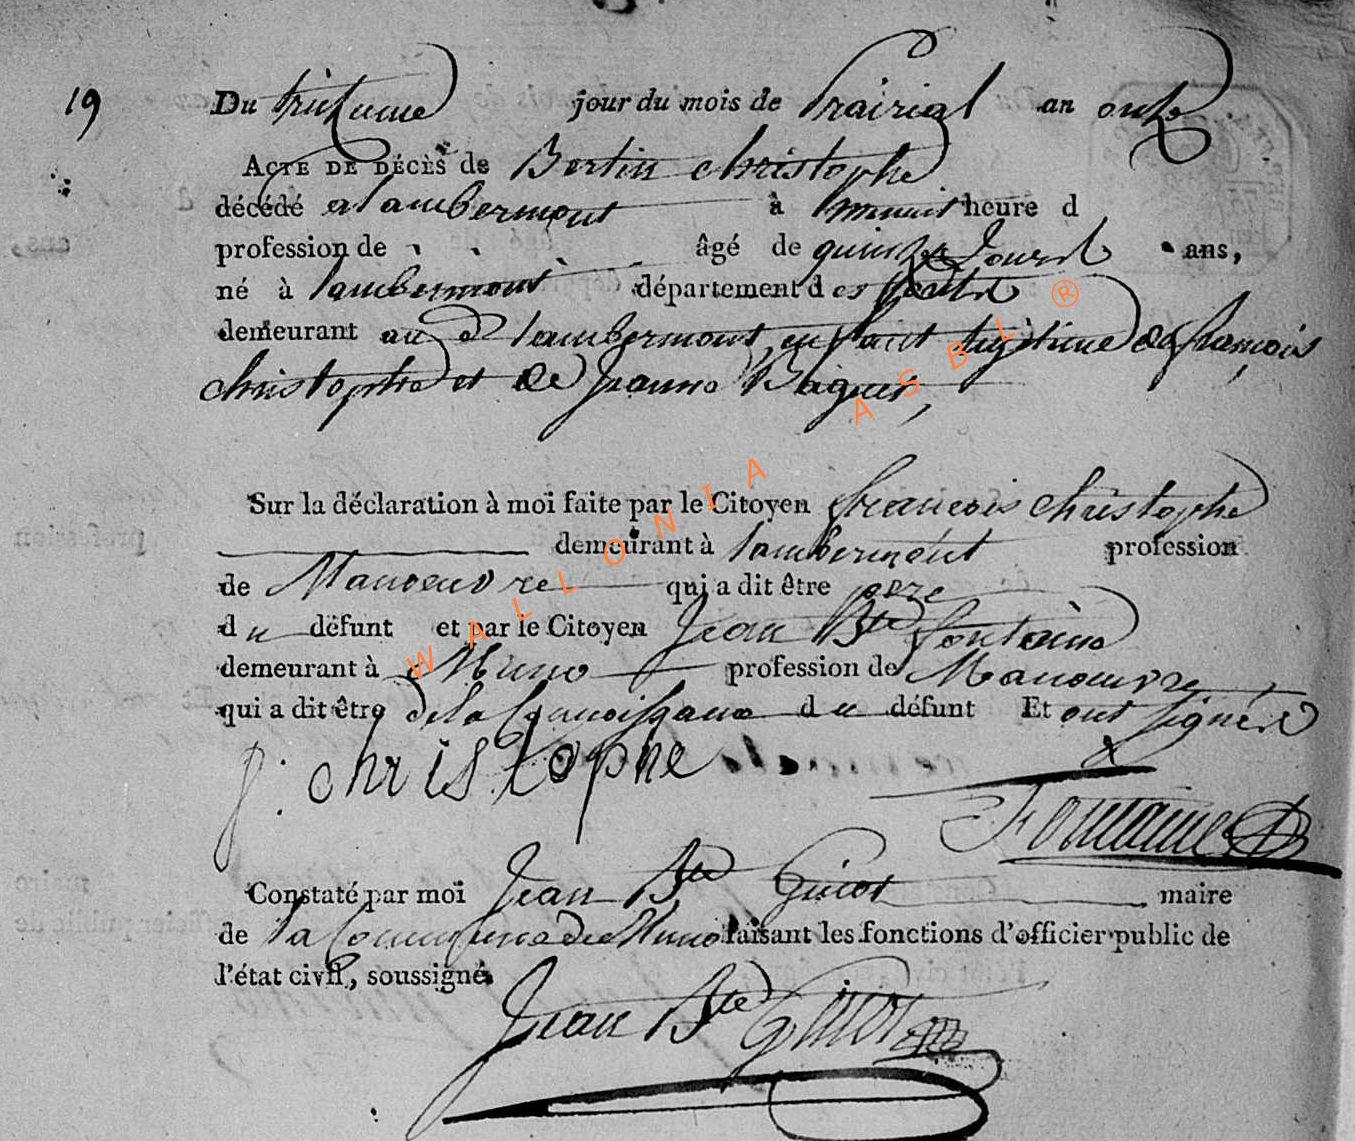 19 Du trizieme jour du mois de Prairial an onze
ACTE DE DÉCÈS de Bertin christophe
décédé a lambermont à minuit heure d
profession de âgé de quinze Jours ans,
né à lambermont département des forêts
demeurant au d lambermont enfant legitime de françois
christophe et de Jeanne Baguet,
Sur la déclaration à moi faite par le Citoyen françois christophe
demeurant à lambermont profession
de Manoeuvre qui a dit être pere
du défunt et par le Citoyen Jean Bte fontaine
demeurant à Muno profession de Manoeuvre
qui a dit être de la Connoissance du défunt Et ont signés
f. christophe
Fontaine
Constaté par moi Jean Bte Guiot maire
de la Commune de Muno faisant les fonctions d'officier public de
l'état civil, soussigné.
Jean Bte Guiot
WALLONIA ASBL ®